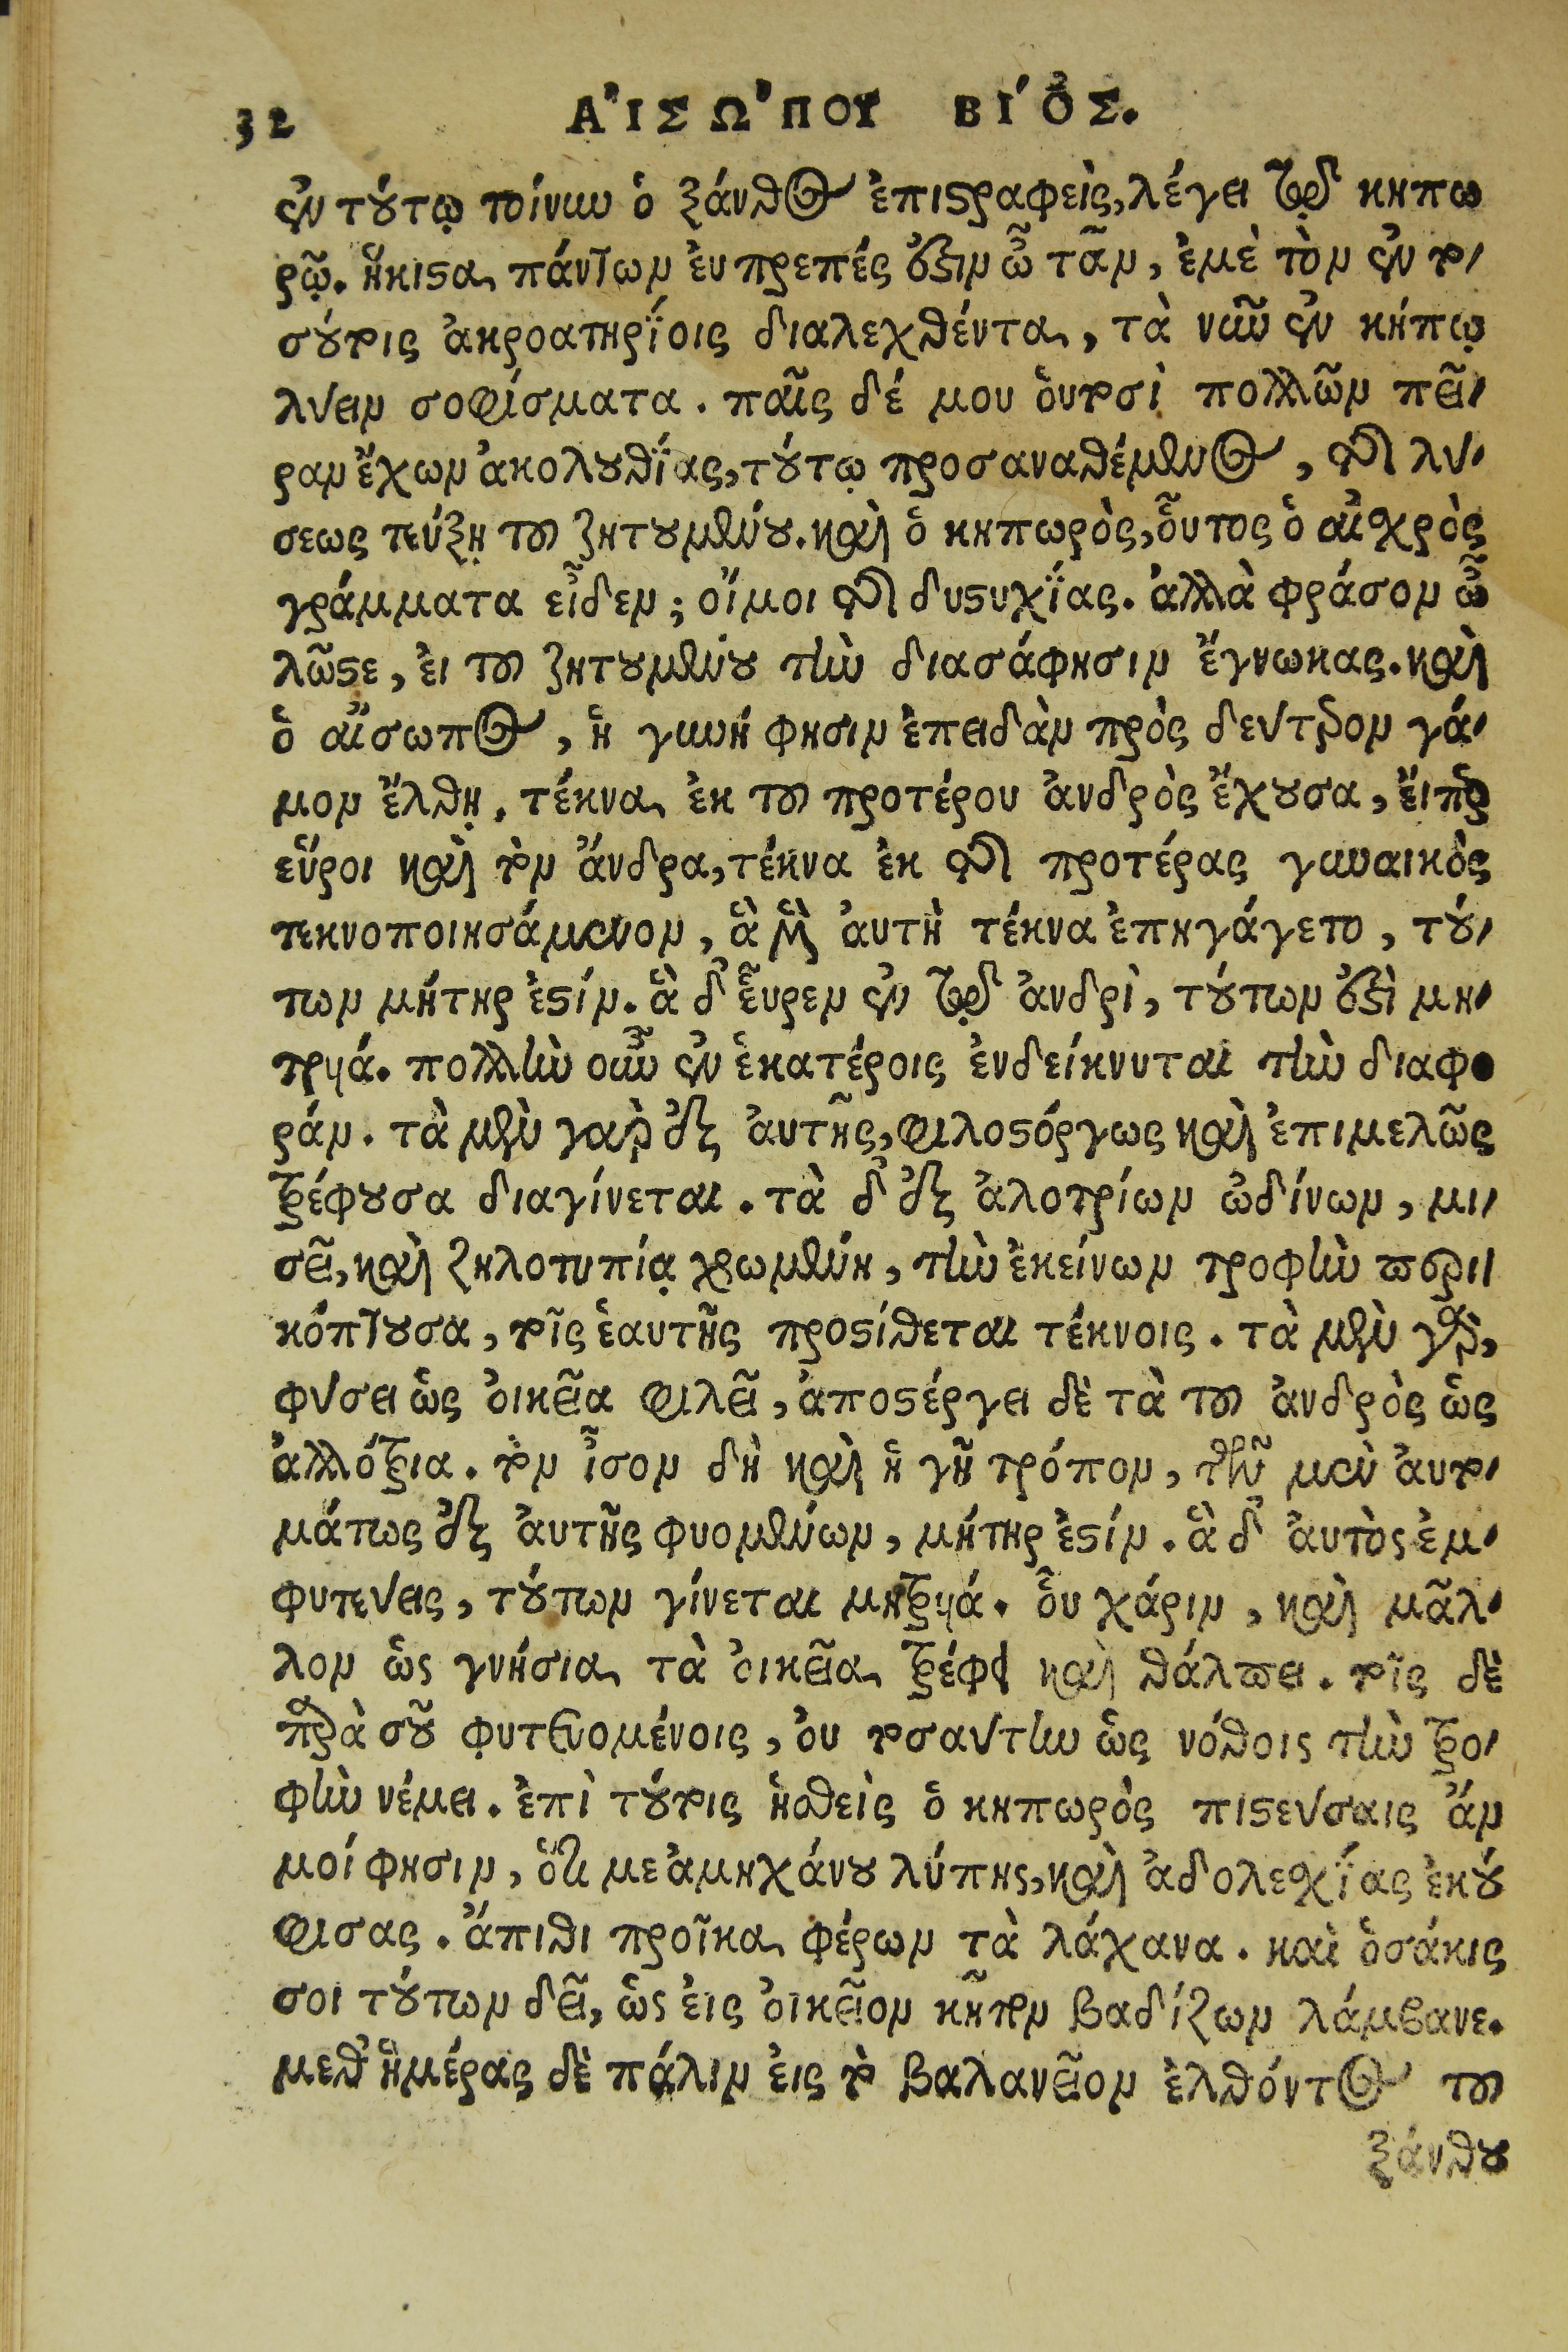 32 ΑἸΣΩ´ΠΟΥ ΒΙ´ΟΣ.
ἐν τούτῳ τοίνυν ὁ ξάνθος ἐπιστραφεὶς, λέγει τῷ κηπω
ρῷ. ἥκιστα πάντων ἐυπρεπές ἐστιν ὦ τᾶν, ἐμὲ τὸν ἐν το-
σούτοις ἀκροατηρΐοις διαλεχθέντα, τὰ νῦν ἐν κήπῳ
λύειν σοφίσματα. παῖς δέ μου ὁυτοσὶ πολλῶν πεῖ-
ραν ἔχων ἀκολουθΐας, τούτῳ προσαναθέμενος, τῆς λύ-
σεως τεύξῃ τοῦ ζητουμένου. καὶ ὁ κηπωρὸς, οὗτος ὁ αἰσχρὸς
γράμματα εἶδεν; οἴμοι τῆς δυστυχΐας. ἀλλὰ φράσον ὦ
λῶστε, ἐι τοῦ ζητουμένου τὴν διασάφησιν ἔγνωκας. καὶ
ὁ αἴσωπος, ἡ γυνή φησιν ἐπειδὰν πρὸς δεύτερον γά-
μον ἔλθῃ, τέκνα ἐκ τοῦ προτέρου ἀνδρὸς ἔχουσα, ἔιπερ
εὕροι καὶ τὸν ἄνδρα, τέκνα ἐκ τῆς προτέρας γυναικὸς
τεκνοποιησάμενον, ἃ μὲν ἀυτὴ τέκνα ἐπηγάγετο, τού-
των μήτηρ ἐστίν. ἃ δ' εὗρεν ἐν τῷ ἀνδρὶ, τούτων ἐστὶ μη-
τρυιά. πολλὴν οὖν ἐν ἑκατέροις ἐνδείκνυται τὴν διαφο
ράν. τὰ μὲν γὰρ ἐξ ἀυτῆς, φιλοστόργως καὶ ἐπιμελῶς
τρέφουσα διαγίνεται. τὰ δ' ἐξ ἀλοτρίων ὠδίνων, μι-
σεῖ, καὶ ζηλοτυπίᾳ χρωμένη, τὴν ἐκείνων τροφὴν περι-
κόπτουσα, τοῖς ἑαυτῆς προστίθεται τέκνοις. τὰ μὲν γὰρ,
φύσει ὡς ὀικεῖα φιλεῖ, ἀποστέργει δὲ τὰ τοῦ ἀνδρὸς ὡς
ἀλλότρια. τὸν ἶσον δὴ καὶ ἡ γῆ τρόπον, τῶν μὲν ἀυτο-
μάτως ἐξ ἀυτῆς φυομένων, μήτηρ ἐστίν. ἃ δ' ἀυτὸς ἐμ-
φυτεύεις, τούτων γίνεται μητρυιά. οὗ χάριν, καὶ μᾶλ-
λον ὡς γνήσια τὰ ὀικεῖα τρέφει καὶ θάλπει. τοῖς δὲ
παρὰ σοῦ φυτευομένοις, ὀυ τοσαύτην ὡς νόθοις τὴν τρο-
φὴν νέμει. ἐπὶ τούτοις ἡσθεὶς ὁ κηπωρὸς πιστεύσαις ἄν
μοί φησιν, ὅτι με ἀμηχάνου λύπης, καὶ ἀδολεσχΐας ἐκού
φισας. ἄπιθι προῖκα φέρων τὰ λάχανα. καὶ ὁσάκις
σοι τούτων δεῖ, ὡς ἐις ὀικεῖον κῆπον βαδίζων λάμβανε.
μεθ' ἡμέρας δὲ πάλιν ἐις τὸ βαλανεῖον ἐλθόντος τοῦ
ξάνθου